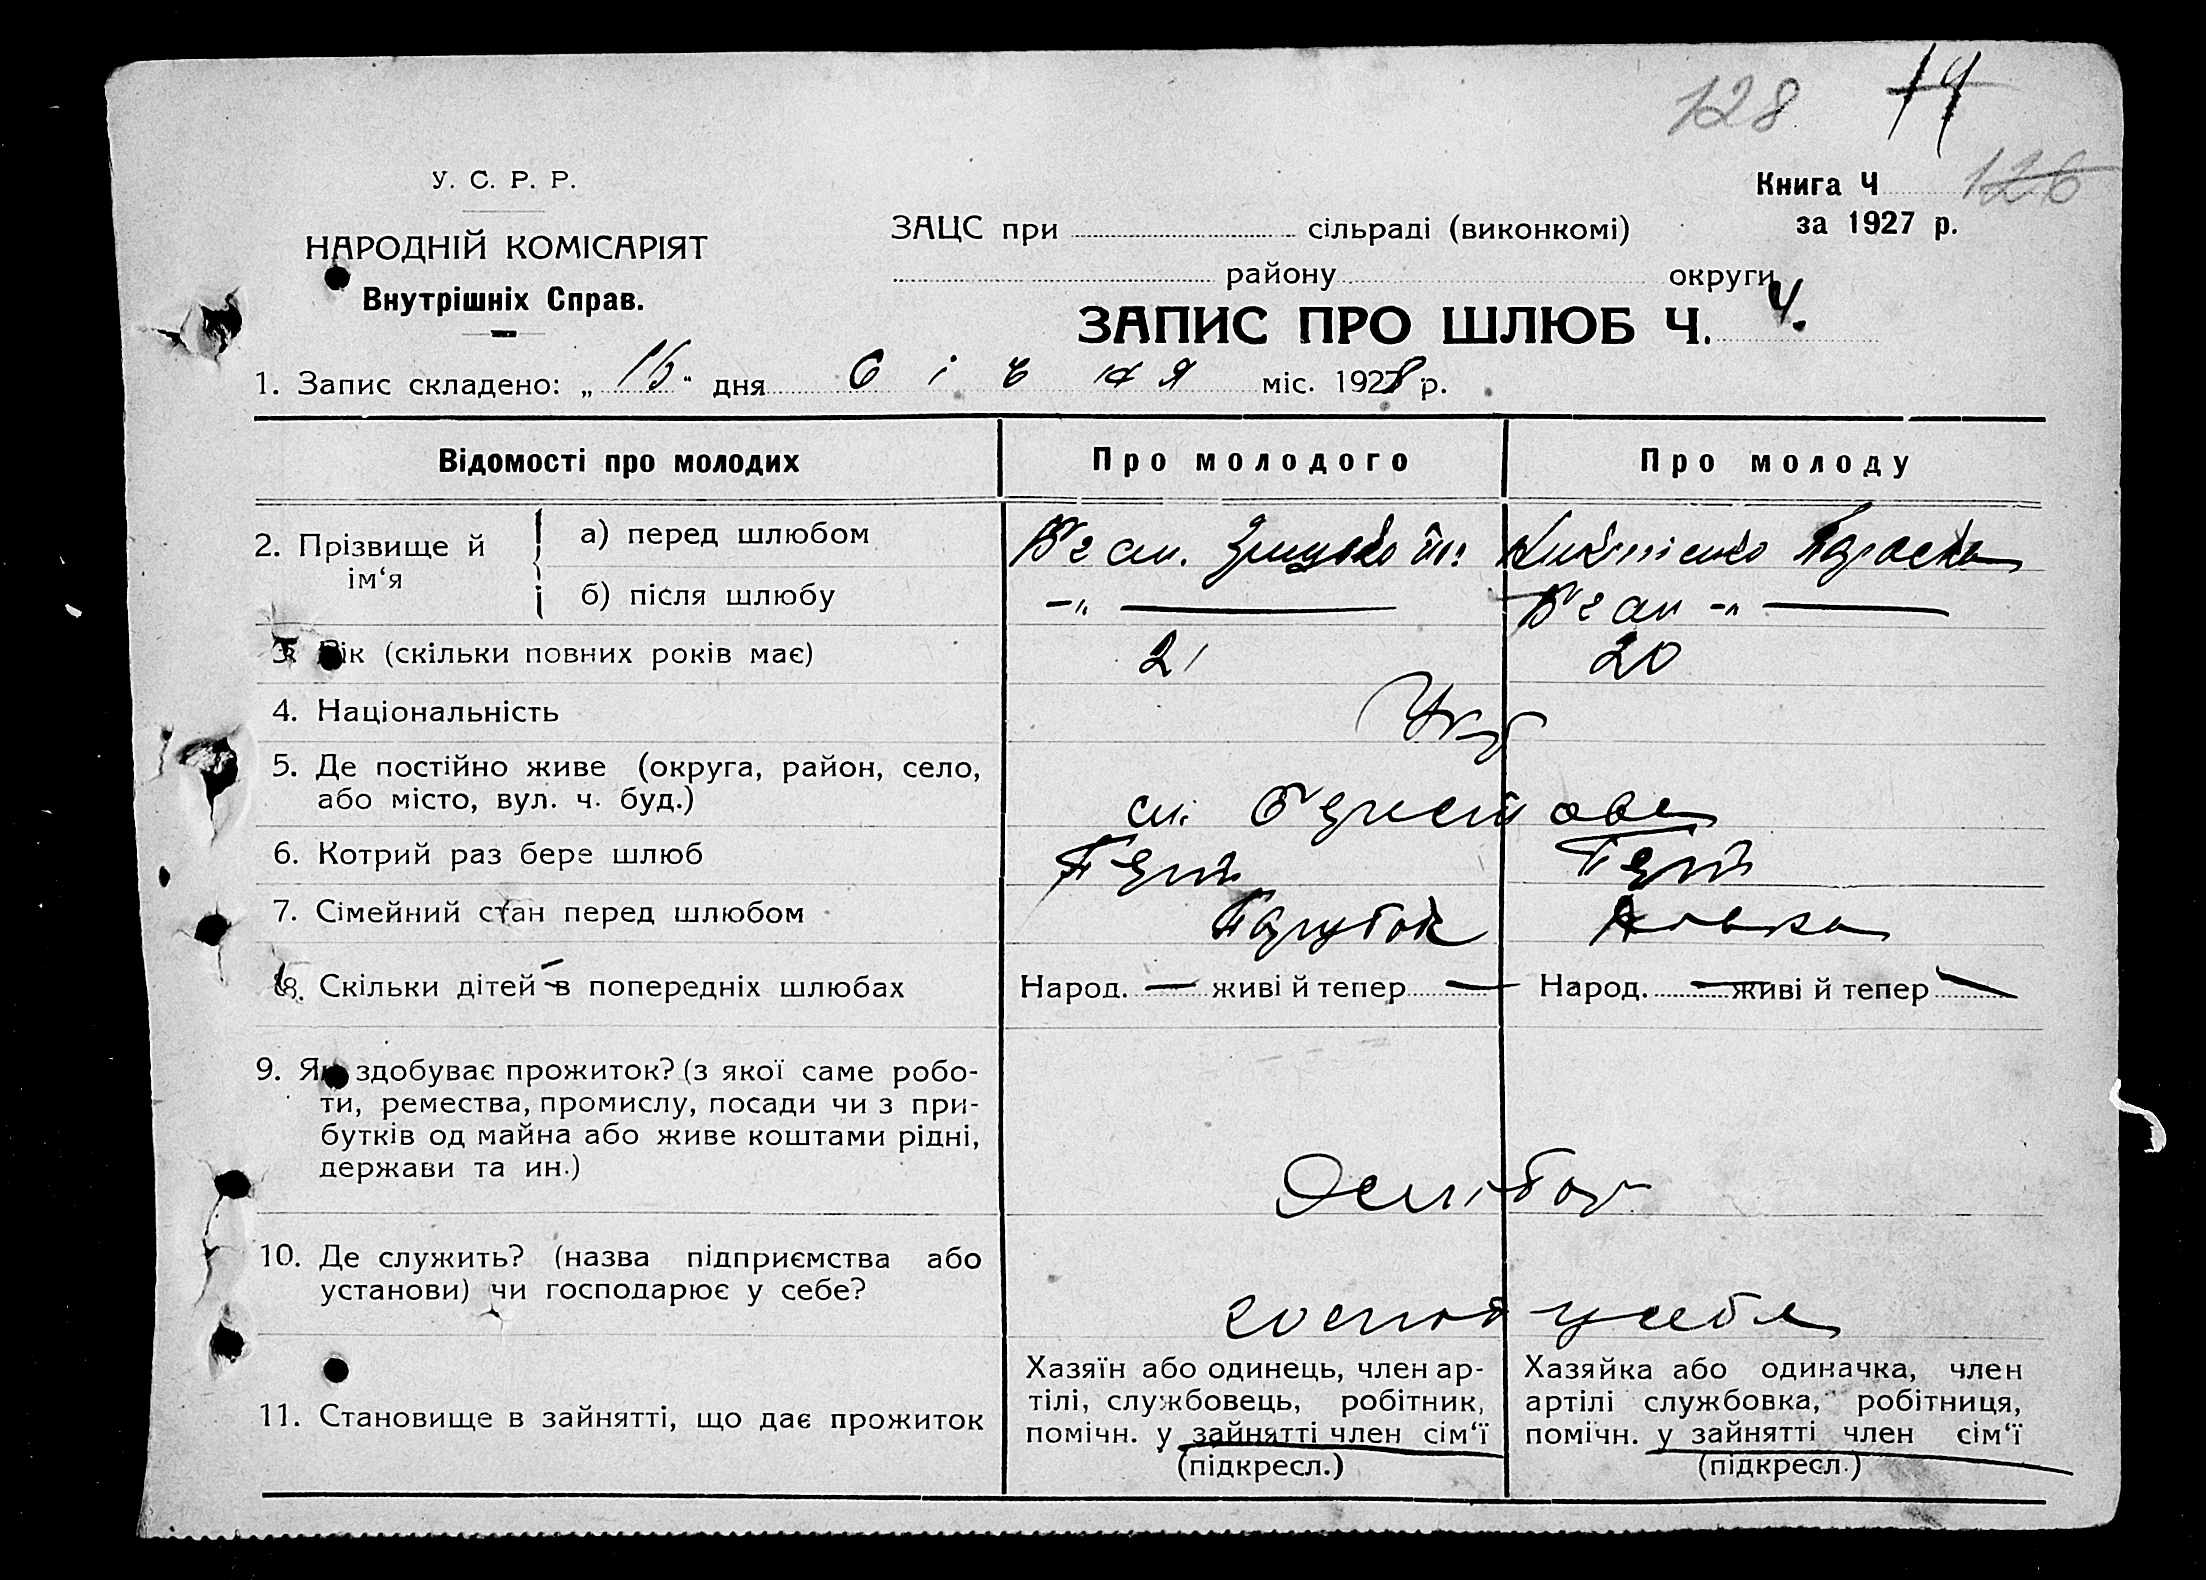 128 14
126
У. С. Р. Р.
НАРОДНІЙ КОМІСАРІЯТ
Внутрішніх Справ.
Книга Ч
за 1927 р.
ЗАЦС при сільраді (виконкомі)
району округи
ЗАПИС ПРО ШЛЮБ Ч. 4.
1. Запис складено: „ 15 " дня Січня міс. 1928 р.
Відомості про молодих Про молодого Про молоду
2. Прізвище й ім‘я
а) перед шлюбом Параска
б) після шлюбу -"- -"-
3. Вік (скільки повних років має) 21 20
4. Національність Укр
5. Де постійно живе (округа, район, село,
або місто, вул. ч. буд.) сл.
6. Котрий раз бере шлюб Перш Перш
7. Сімейний стан перед шлюбом Парубок Дівка
8. Скільки дітей в попередніх шлюбах Народ. — живі й тепер — Народ. — живі й тепер —
9. Як здобуває прожиток? (з якої саме робо-
ти, ремества, промислу, посади чи з при-
бутків од майна або живе коштами рідні,
держави та ин.)
Хлібор
10. Де служить? (назва підприємства або
установи) чи господарює у себе?
господ у себе
11. Становище в зайнятті, що дає прожиток
Хазяїн або одинець, член ар-
тілі, службовець, робітник,
помічн. у зайнятті член сім‘ї
(підкресл.)
Хазяйка або одиначка, член
артілі службовка, робітниця,
помічн. у зайнятті член сім‘ї
(підкресл.)